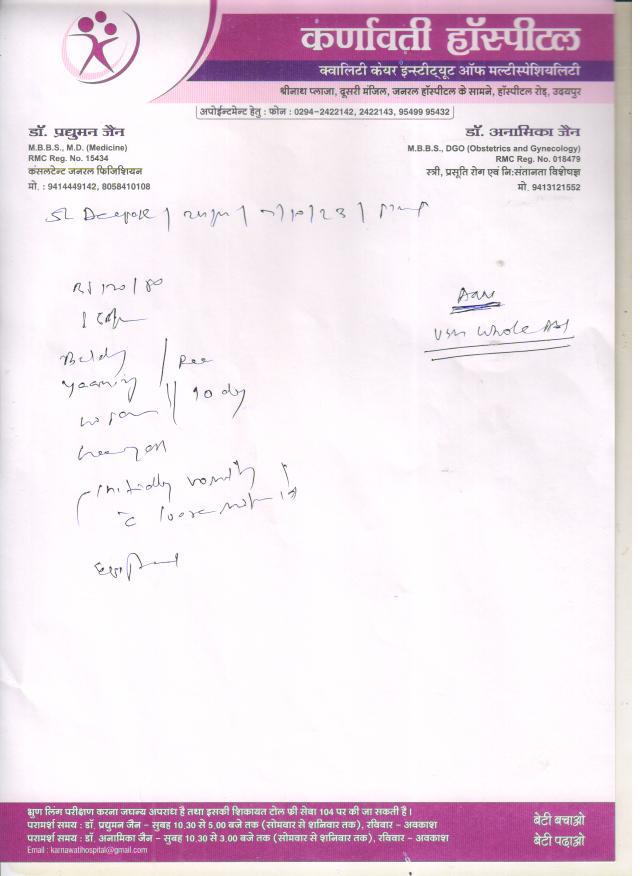 कर्णावती हॉस्पीटल
क्वालिटी केयर इन्स्टीट्यूट ऑफ मल्टीस्पेशियलिटी
श्रीनाथ प्लाजा, दूसरी मंजिल, जनरल हॉस्पीटल के सामने, हॉस्पीटल रोड़, उदयपुर
अपोईन्टमेन्ट हेतु : फोन : 0294-2422142, 2422143, 95499 95432
डॉ. प्रद्युमन जैन
M.B.B.S., M.D. (Medicine)
RMC Reg. No. 15434
कंसलटेन्ट जनरल फिजिशियन
मो. : 9414449142, 8058410108
डॉ. अनामिका जैन
M.B.B.S., DGO (Obstetrics and Gynecology)
RMC Reg. No. 018479
स्त्री, प्रसूति रोग एवं नि:संतानता विशेषज्ञ
मो. 9413121552
Deepak / /10/23 /
120/80
10 day
(Initially vomity
c̄ loose motion
Adv
USG Whole Abd
भ्रुण लिंग परीक्षण करना जघन्य अपराध है तथा इसकी शिकायत टोल फ्री सेवा 104 पर की जा सकती है ।
परामर्श समय : डॉ. प्रद्युमन जैन - सुबह 10.30 से 5.00 बजे तक (सोमवार से शनिवार तक), रविवार - अवकाश
परामर्श समय : डॉ. अनामिका जैन - सुबह 10.30 से 3.00 बजे तक (सोमवार से शनिवार तक), रविवार - अवकाश
Email : karnawatihospital@gmail.com
बेटी बचाओ
बेटी पढ़ाओ